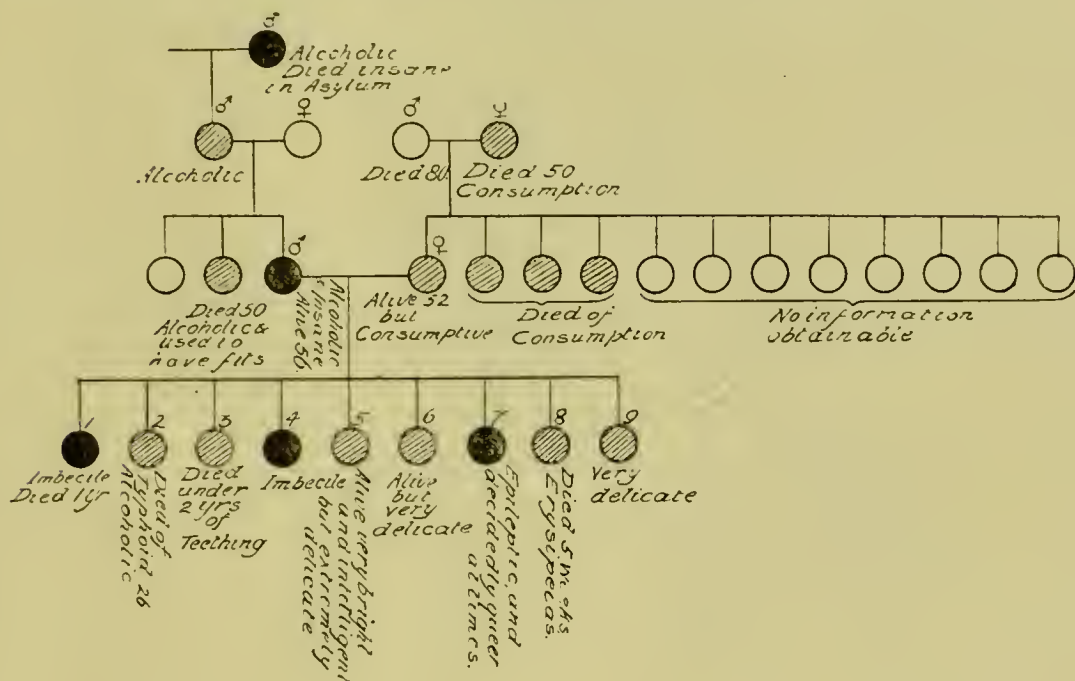 ♂
Alcoholic
Died insane
in Asylum
♂
♀
♂
♀
Alcoholic
Died 80.
Died 50
Consumption
♂
♀
Died 50
Alcoholic &
used to
have fits
Alcoholic
& insane
Alive 56.
Alive 52
but
Consumptive
Died of
Consumption
No information
obtainable
1
2
3
4
5
6
7
8
9
Imbecile
Died 1yr
Died of
Typhoid 26
Alcoholic
Died
under
2 yrs
of
Teething
Imbecile
Alive very bright
and intelligent
but extremely
delicate
Alive
but
very
delicate
Epileptic, and
decidedly queer
at times.
Died 5
Erysipelas.
Very
delicate